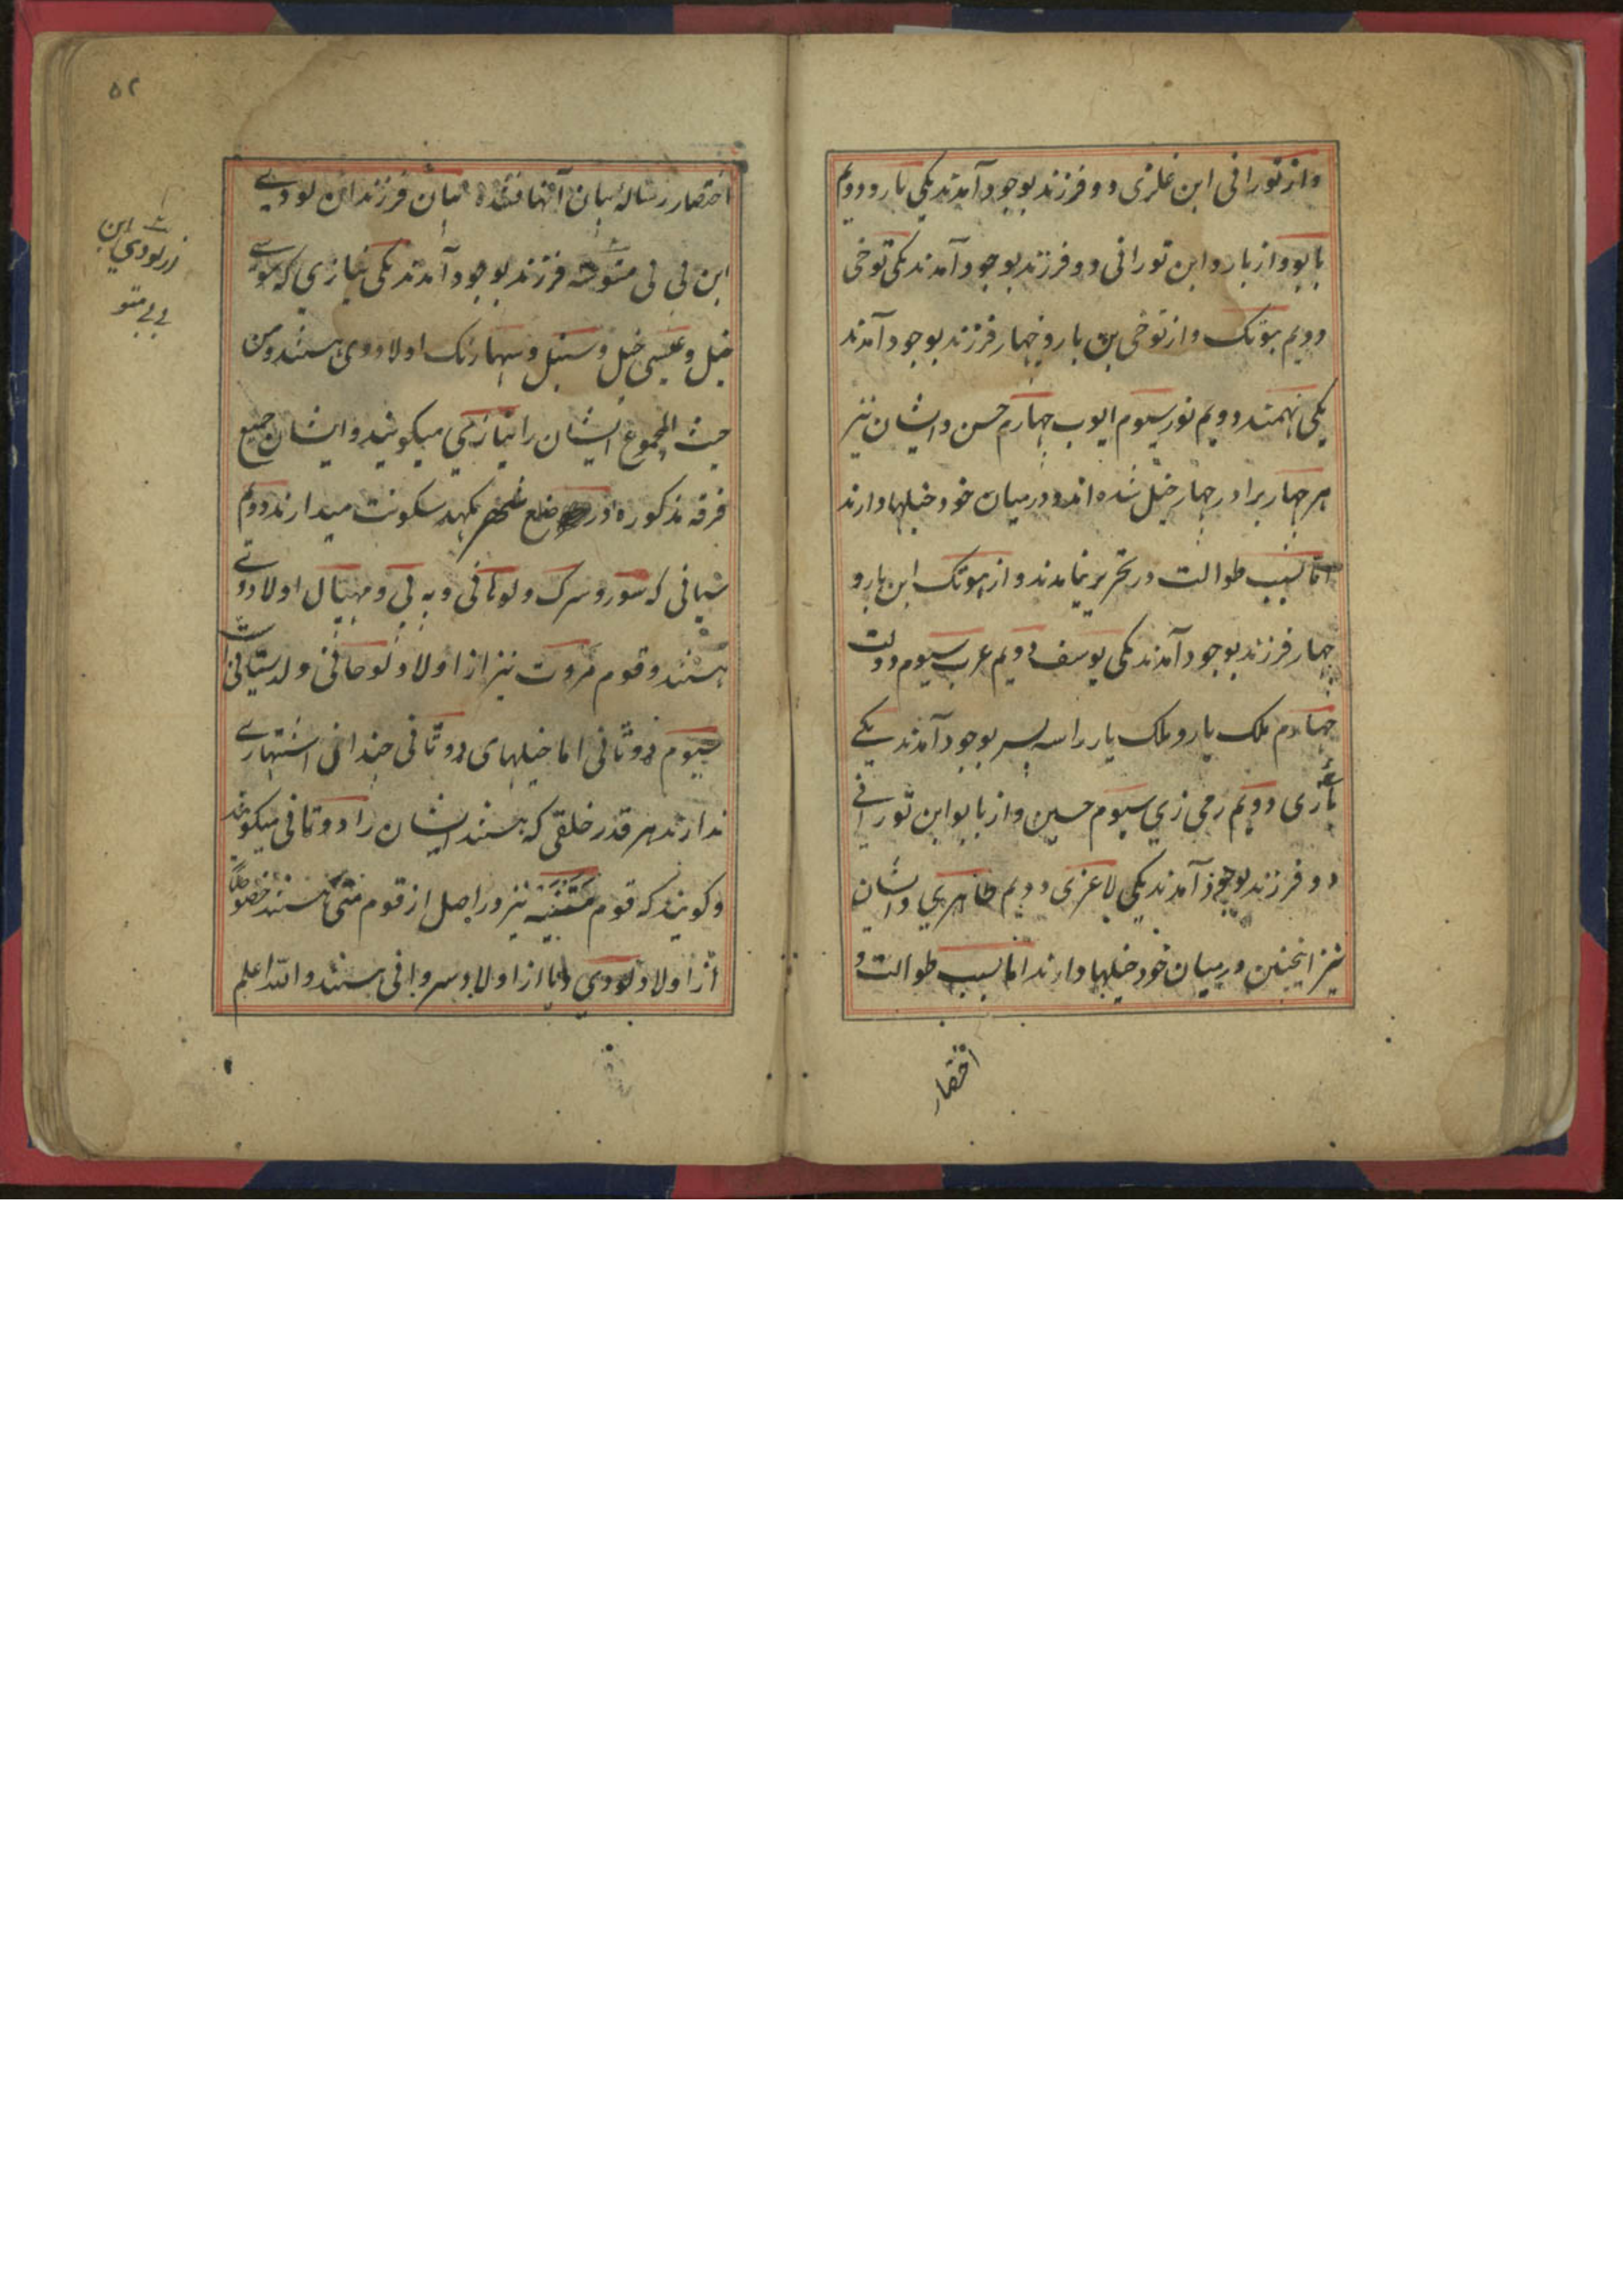 واز تورانی ابن غلزی دو فرزند بوجود آمدند یکی بارو دویم
بابو واز بارو ابن تورانی دو فرزند بوجود آمدند یکی توخی
دویم هوتک واز توخی بن بارو چهار فرزند بوجود آمدند
یکی مهمند دویم نور سیوم ایوب چهارم حسن وایشان نیز
هر چهار برادر چهار خیل شده اند ودرمیان خود خیلها دارند
اما بسبب طوالت در تحریر نیامدند واز هوتک ابن بارو
چهار فرزند بوجود آمدند یکی یوسف دویم عرب سیوم دولت
چهارم ملک یار وملک یار را سه پسر بوجود آمدند یکے
دویم رمی زی سیوم حسین واز بابو ابن تورانے
دو فرزند بوجود آمدند یکی دویم طاهری وایشان
نیز اینچنین درمیان خود خیلها دارند اما بسبب طوالت و
اختصار
۵۲
اختصار رساله بیان آنها نشده بیان فرزندان لودیے
ابن بی بی متو سه فرزند بوجود آمدند یکی نیازی که موسے
خیل و عیسی خیل و سنبل و سهارنک اولاد وی هستند ومن
حیث المجموع ایشان را نیازی میکویند وایشان جمیع
فرقه مذکوره در ضلع مکهد سکونت میدارند دویم
سیانی که سور و سرک و لوحانی و به بی و مهپال اولاد وے
هستند وقوم مروت نیز از اولاد لوحانی ولد سیانی است
سیوم دوتانی اما خیلهای دوتانی چندانی اشتهارے
ندارند هر قدر خلقی که هستند ایشان را دوتانی میکویند
وکویند که قوم نیز در اصل از قوم متی هستند خصوصاً
از اولاد لودی واما از اولاد سروانی هستند والله اعلم
لودي ابن
بی بی متو